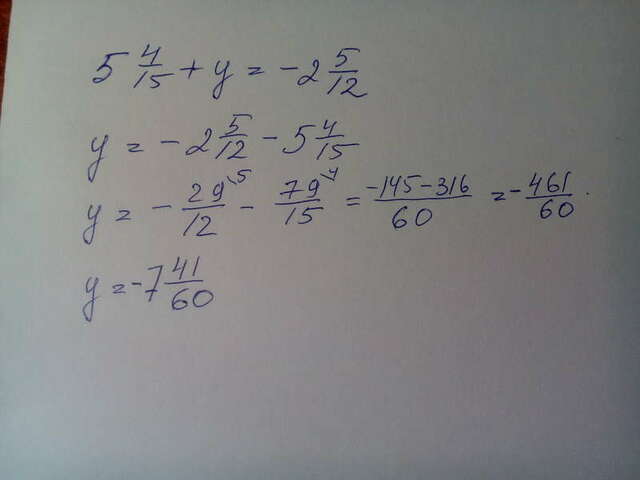 5 4/15 + y = -2 5/12
y = -2 5/12 - 5 4/15
y = - 29\5/12 - 79\4/15 = -145-316/60 = - 461/60.
y = -7 41/60